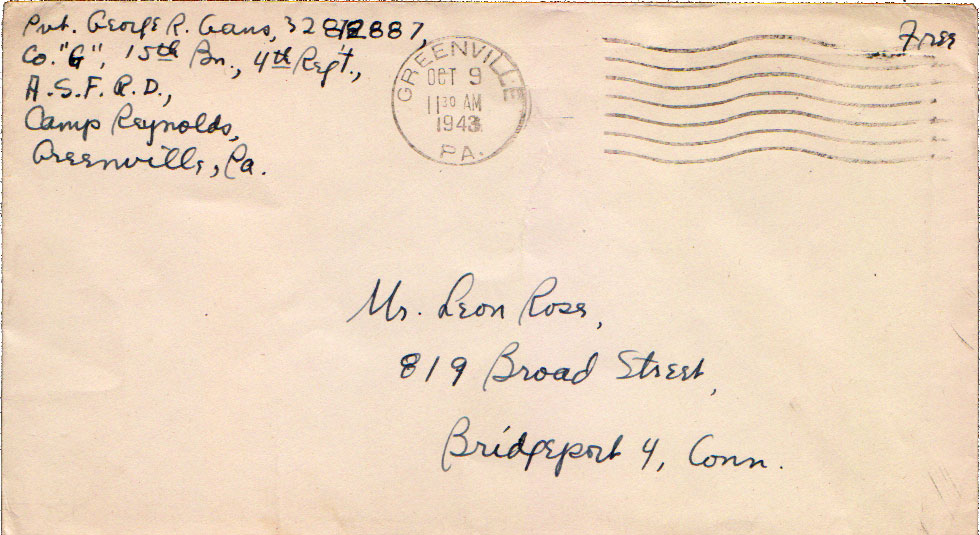 Pvt. George R. Gans, 32812887,
Co. "G", 15th Bn., 4th Regt.,
A.S.F.R.D.,
Camp Reynolds,
Greenville, Pa.
GREENVILLE
OCT 9
11 30 AM
1943
PA.
Free
Mr. Leon Rose,
819 Broad Street,
Bridgeport 4, Conn.